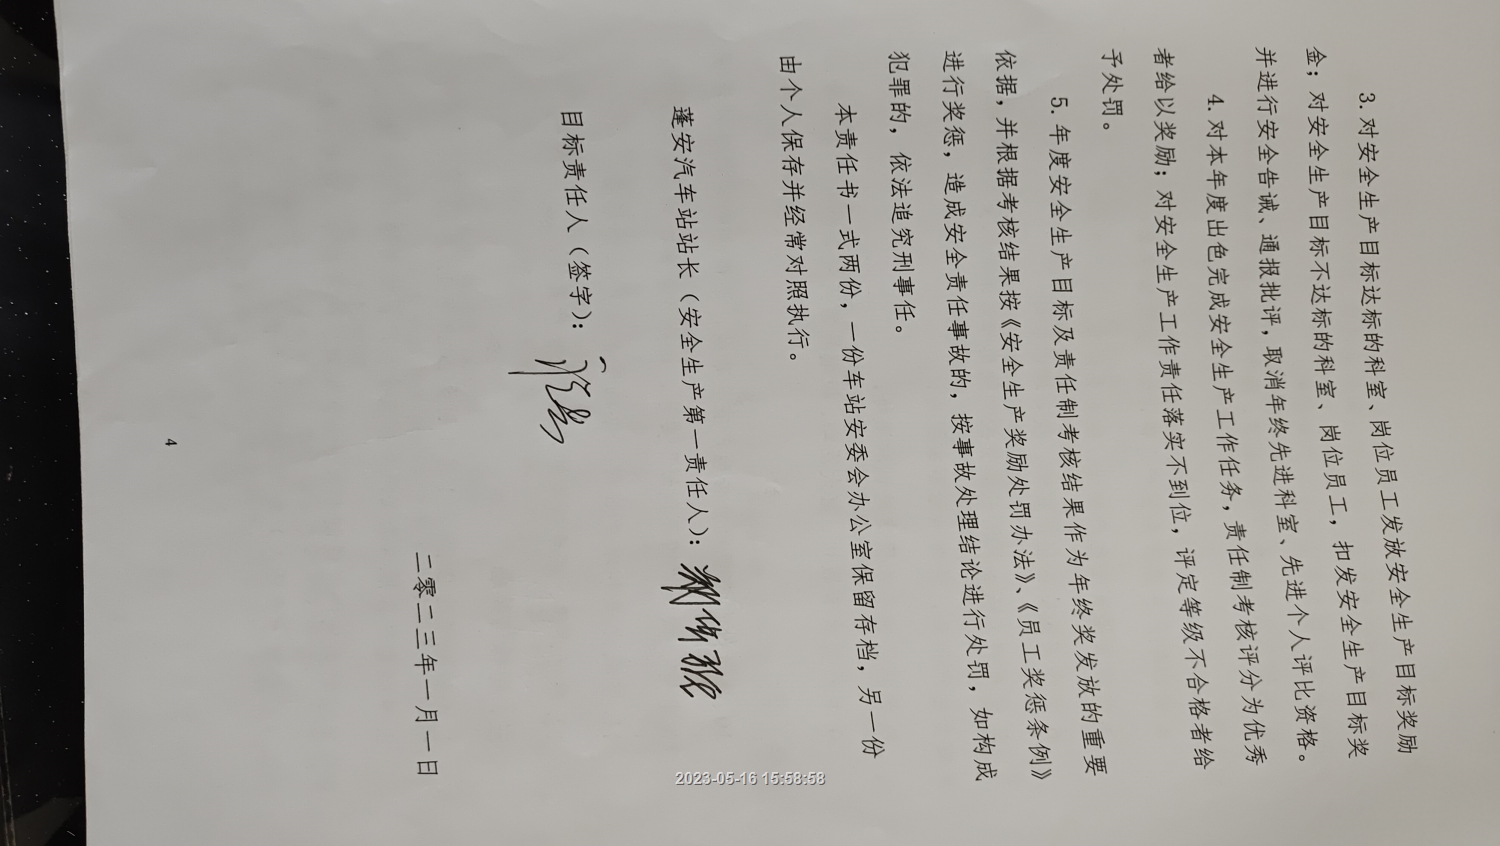 3. 对安全生产目标达标的科室、岗位员工发放安全生产目标奖励
金；对安全生产目标不达标的科室、岗位员工，扣发安全生产目标奖
并进行安全告诫、通报批评，取消年终先进科室、先进个人评比资格。
4. 对本年度出色完成安全生产工作任务，责任制考核评分为优秀
者给以奖励；对安全生产工作责任落实不到位，评定等级不合格者给
予处罚。
5. 年度安全生产目标及责任制考核结果作为年终奖发放的重要
依据，并根据考核结果按《安全生产奖励处罚办法》、《员工奖惩条例》
进行奖惩，造成安全责任事故的，按事故处理结论进行处罚，如构成
犯罪的，依法追究刑事任。
本责任书一式两份，一份车站安委会办公室保留存档，另一份
由个人保存并经常对照执行。
蓬安汽车站站长（安全生产第一责任人）：
目标责任人（签字）：
二零二三年一月一日
4
2023-05-16 15:58:58